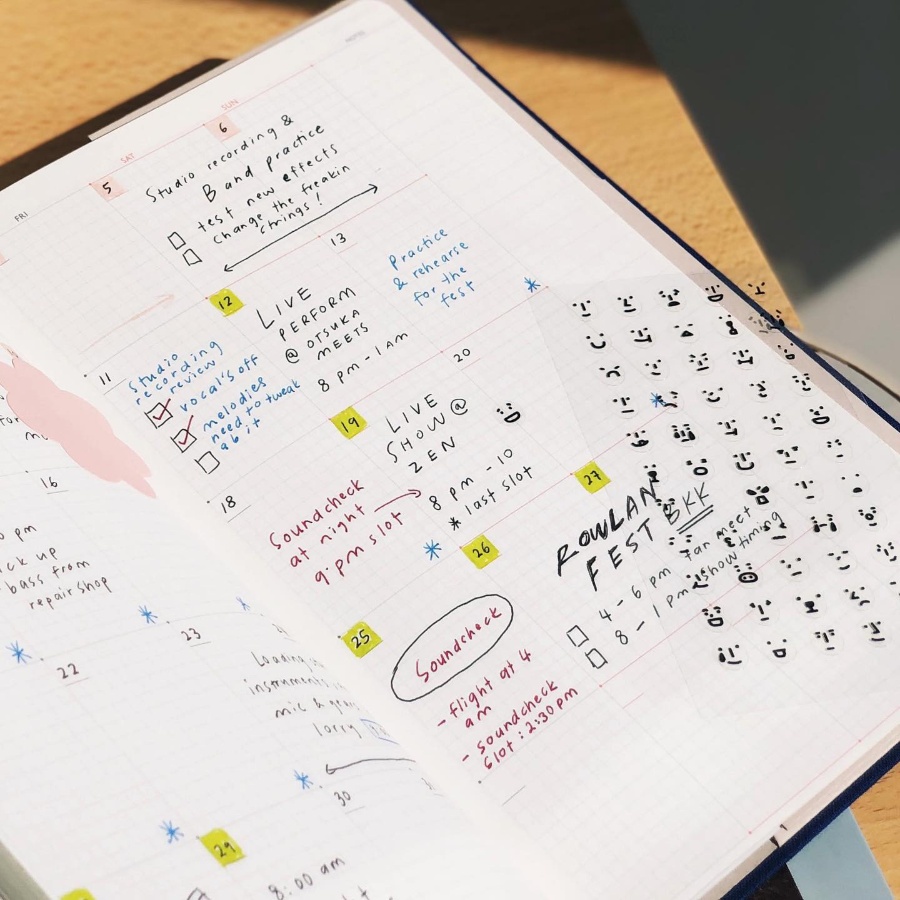 NOTES
SUN
SAT
FRI
6
5
Studio recording &
Band practice
test new effects
change the freakin
strings!
13
12
LIVE
PERFORM
@ OTSUKA
MEETS
8 pm - 1 am
Practice
& rehearse
for the
fest
11
Studio
recording
review
vocal's off
melodies
need to tweak
a bit
20
19
LIVE
SHOW @
ZEN
8 pm - 10
* last slot
18
Soundcheck
at night
9 pm slot
27
ROWLAN
FEST BKK
4 - 6 pm fan meet
8 - 1 pm show timing
26
25
Soundcheck
- flight at 4
am
- soundcheck
slot : 2:30 pm
16
pm
ick up
bass from
repair shop
22
23
Loading
instruments
mic & gear
lorry
30
29
8:00 am